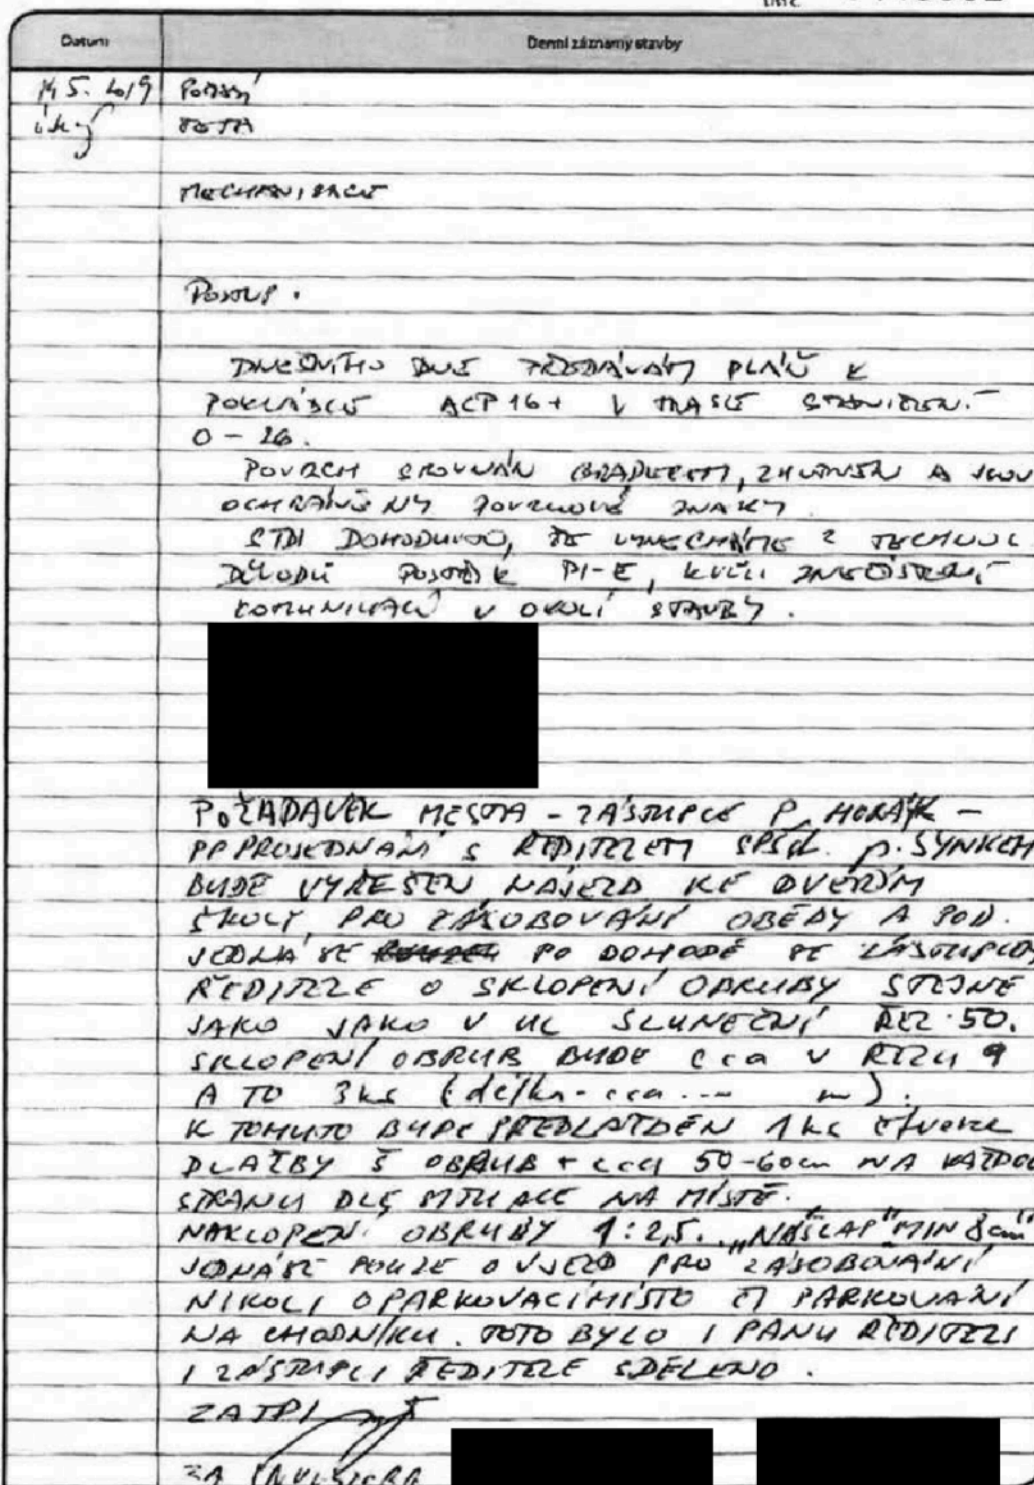 Datum Denní záznamy stavby
14 5. 2019 POČASÍ
úterý
MECHANISACE
POSTUP.
DNEŠNÍHO DNE PŘEDÁVÁM PLÁŇ K
POKLÁDCE ACP 16+ V TRASE STANIČEN.
0 - 26.
POVRCH SROVNÁN GRADEREM, ZHUTNĚN A JSOU
OCHRÁNĚNY POVRCHOVÉ ZNAKY.
STDI DOHODNUTO, ŽE VYNECHÁME Z TECHNOL
DŮVODŮ POSTŘIK PI-E, KVŮLI ZNEČIŠTĚNÍ
KOMUNIKACÍ V OKOLÍ STAVBY.
POŽADAVEK MESTA - ZÁSTUPCE P. HORÁK -
PP PROJEDNÁNÍ S ŘEDITELEM p. SYNKEM
BUDE VYŘEŠEN NÁJEZD KE DVEŘÍM
ŠKOLY PRO ZÁSOBOVÁNÍ OBĚDY A POD.
JEDNÁ SE PO DOHODĚ SE ZÁSTUPCEM
ŘEDITELE O SKLOPENÍ OBRUBY STEJNĚ
JAKO JAKO V UL SLUNEČNÍ ŘEZ 50.
SKLOPENÍ OBRUB BUDE cca V ŘEZU 9
A TO 3ks (délka - cca ... m).
K TOMUTO BUDE PŘEDLÁŽDĚN 1ks čtverec
DLAŽBY Š OBRUB + cca 50-60cm NA KAŽDOU
STRANU DLE SITUACE NA MÍSTĚ.
NAKLOPEN. OBRUBY 1:2,5. „NÁŠLAP" MIN 8cm"
JEDNÁ SE POUZE O VJEZD PRO ZÁSOBOVÁNÍ
NIKOLI O PARKOVACÍ MÍSTO ČI PARKOVÁNÍ
NA CHODNÍKU. TOTO BYLO I PANU ŘEDITELI
I ZÁSTUPCI ŘEDITELE SDĚLENO.
ZA TDI
ZA INVESTORA